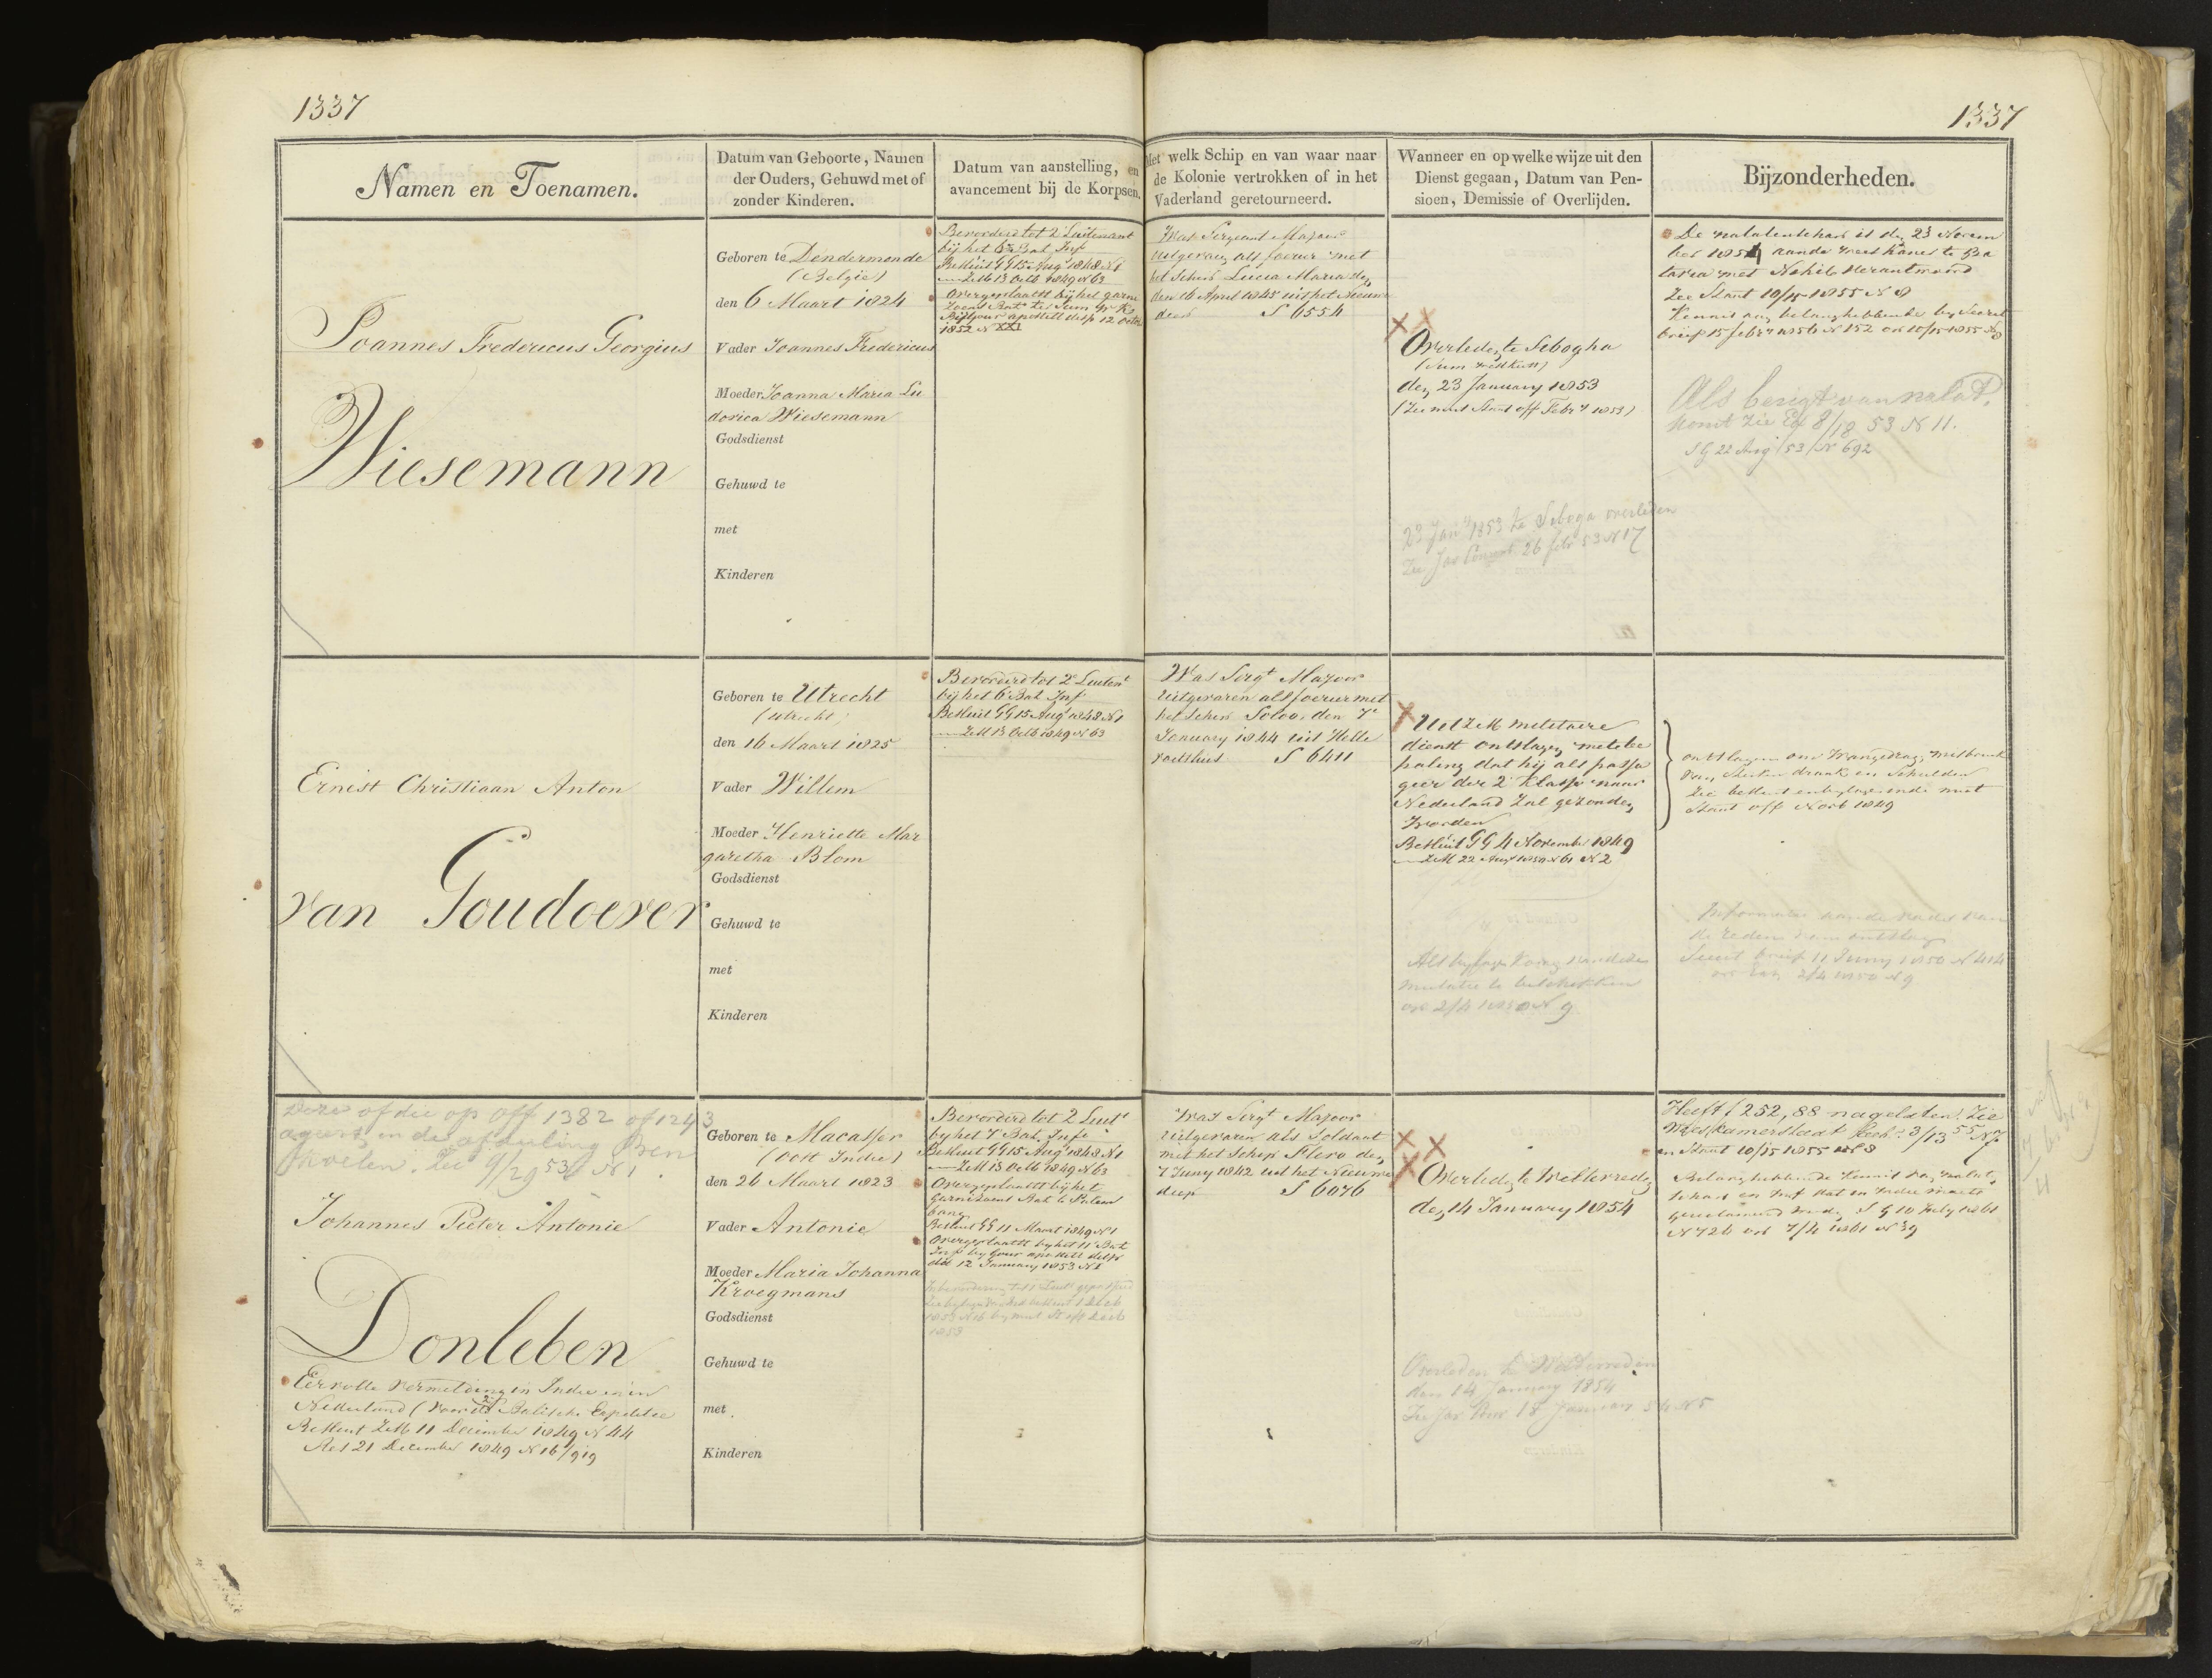 1337
1337
Namen en Toenamen.
Datum van Geboorte, Namen
der Ouders, Gehuwd met of
zonder Kinderen.
Datum van aanstelling, en
avancement bij de Korpsen.
Met welk Schip en van waar naar
de Kolonie vertrokken of in het
Vaderland geretourneerd.
Wanneer en op welke wijze uit den
Dienst gegaan, Datum van Pen-
sioen, Demissie of Overlijden.
Bijzonderheden.
Joannes Fredericus Georgius
Wiesemann
Geboren te Dendermonde
(België)
den 6 Maart 1824
Vader Joannes Fredericus
Moeder Joanna Maria Lu
dovica Wiesemann
Godsdienst
Gehuwd te
met
Kinderen
Bevorderd tot 2e Luitenant
bij het 6e Bat Inf
Besluit GG 15 Aug 1848 N 1
ZM 13 Octb 1849 N 63
Overgeplaatst bij het garni
12 Octb
1852 N XXI
Was Sergeant Majoor
uitgevaren als fourier met
het Schip Lucia Maria den
den 16 April 1845 uit het Nieuwe
diep S 6554
Overleden te Sebogha
den 23 January 1853
(Zie mut Staat off Febry 1853)
23 Jany 1853 te Seboga overleden
Zie Jav Courant 26 febr 53 N 17
De nalatenschap is den 23 Novem
ber 1854 aan de weeskamer te Ba
tavia met Nihil verantwoord
Zie Staat 10/15 1855 N 8
Kennis aan belanghebbenden by Secret
brief 15 febry 1856 N 152 10/15 1855 N 8
Als berigt van nalat.
komt zie Ex 8/18 53 N 11.
SG 22 Aug 53 N 692
Ernist Christiaan Anton
van Goudoever
Geboren te Utrecht
(Utrecht)
den 16 Maart 1825
Vader Willem
Moeder Henriette Mar
garetha Blom
Godsdienst
Gehuwd te
met
Kinderen
Bevorderd tot 2e Luitent
bij het 6e Bat Inf
Besluit GG 15 Aug 1848 N 1
ZM 13 Octb 1849 N 63
Was Sergt Majoor
uitgevaren als fourier met
het Schip Soloo, den 7e
January 1844 uit Helle
voetsluis S 6411
Uit ZM militaire
dienst ontslagen met be
paling dat hij als passa
gier der 2e Klasse naar
Nederland zal gezonden
worden
Besluit GG 4 November 1849
ZM 22 Augt 1850 N 61 N 2
2/4 1850 N 9
ontslagen om wangedrag, misbruik
van sterken drank en schulden
Zie besluit en bylagen in de mut
Staat off Novb 1849
de reden van ontslag
brief 11 Juny 1850 N 414
2/4 1850 N 9
Deze of die op off 1382 of 1243
ageert in de afdeeling Ben
koelen. Zie 9/29 53 N 1.
Johannes Pieter Antonie
Donleben
Eervolle vermelding in Indie en in
Nederland (voor de 2e Balische Expeditie
Besluit ZM 11 December 1849 N 44
Res 21 December 1849 N 16/919
Geboren te Macasser
(Oost Indie)
den 26 Maart 1823
Vader Antonie
Moeder Maria Johanna
Kroegmans
Godsdienst
Gehuwd te
met
Kinderen
Bevorderd tot 2 Luit
by het 7e Bat. Infe
Besluit GG 15 Aug 1848 N 1
ZM 13 Octb 1849 N 63
Overgeplaatst by het
Garnizoens Bat te Palem
bang
Besluit GG 11 Maart 1849 N 1
Overgeplaatst by het 11e Bat
Inf by Gouv
12 January 1853 N 1
Was Sergt Majoor
uitgevaren als Soldaat
met het Schip Flevo den
7 Juny 1842 uit het Nieuwe
diep S 6076
Overleden te Weltevreden
den 14 January 1854
Overleden te Weltevreden
den 14 January 1854
Zie Jav Cour 18 January 54 N 5
Heeft f 252,88 nagelaten. Zie
Weeskamerstaat 3/13 55 N 7
en Staat 10/15 1855 N 8
Belanghebbende kennis van nalaten
schap en dat in Indie moet
gereclameerd worden SG 10 July 1861
N 726 7/4 1861 N 39